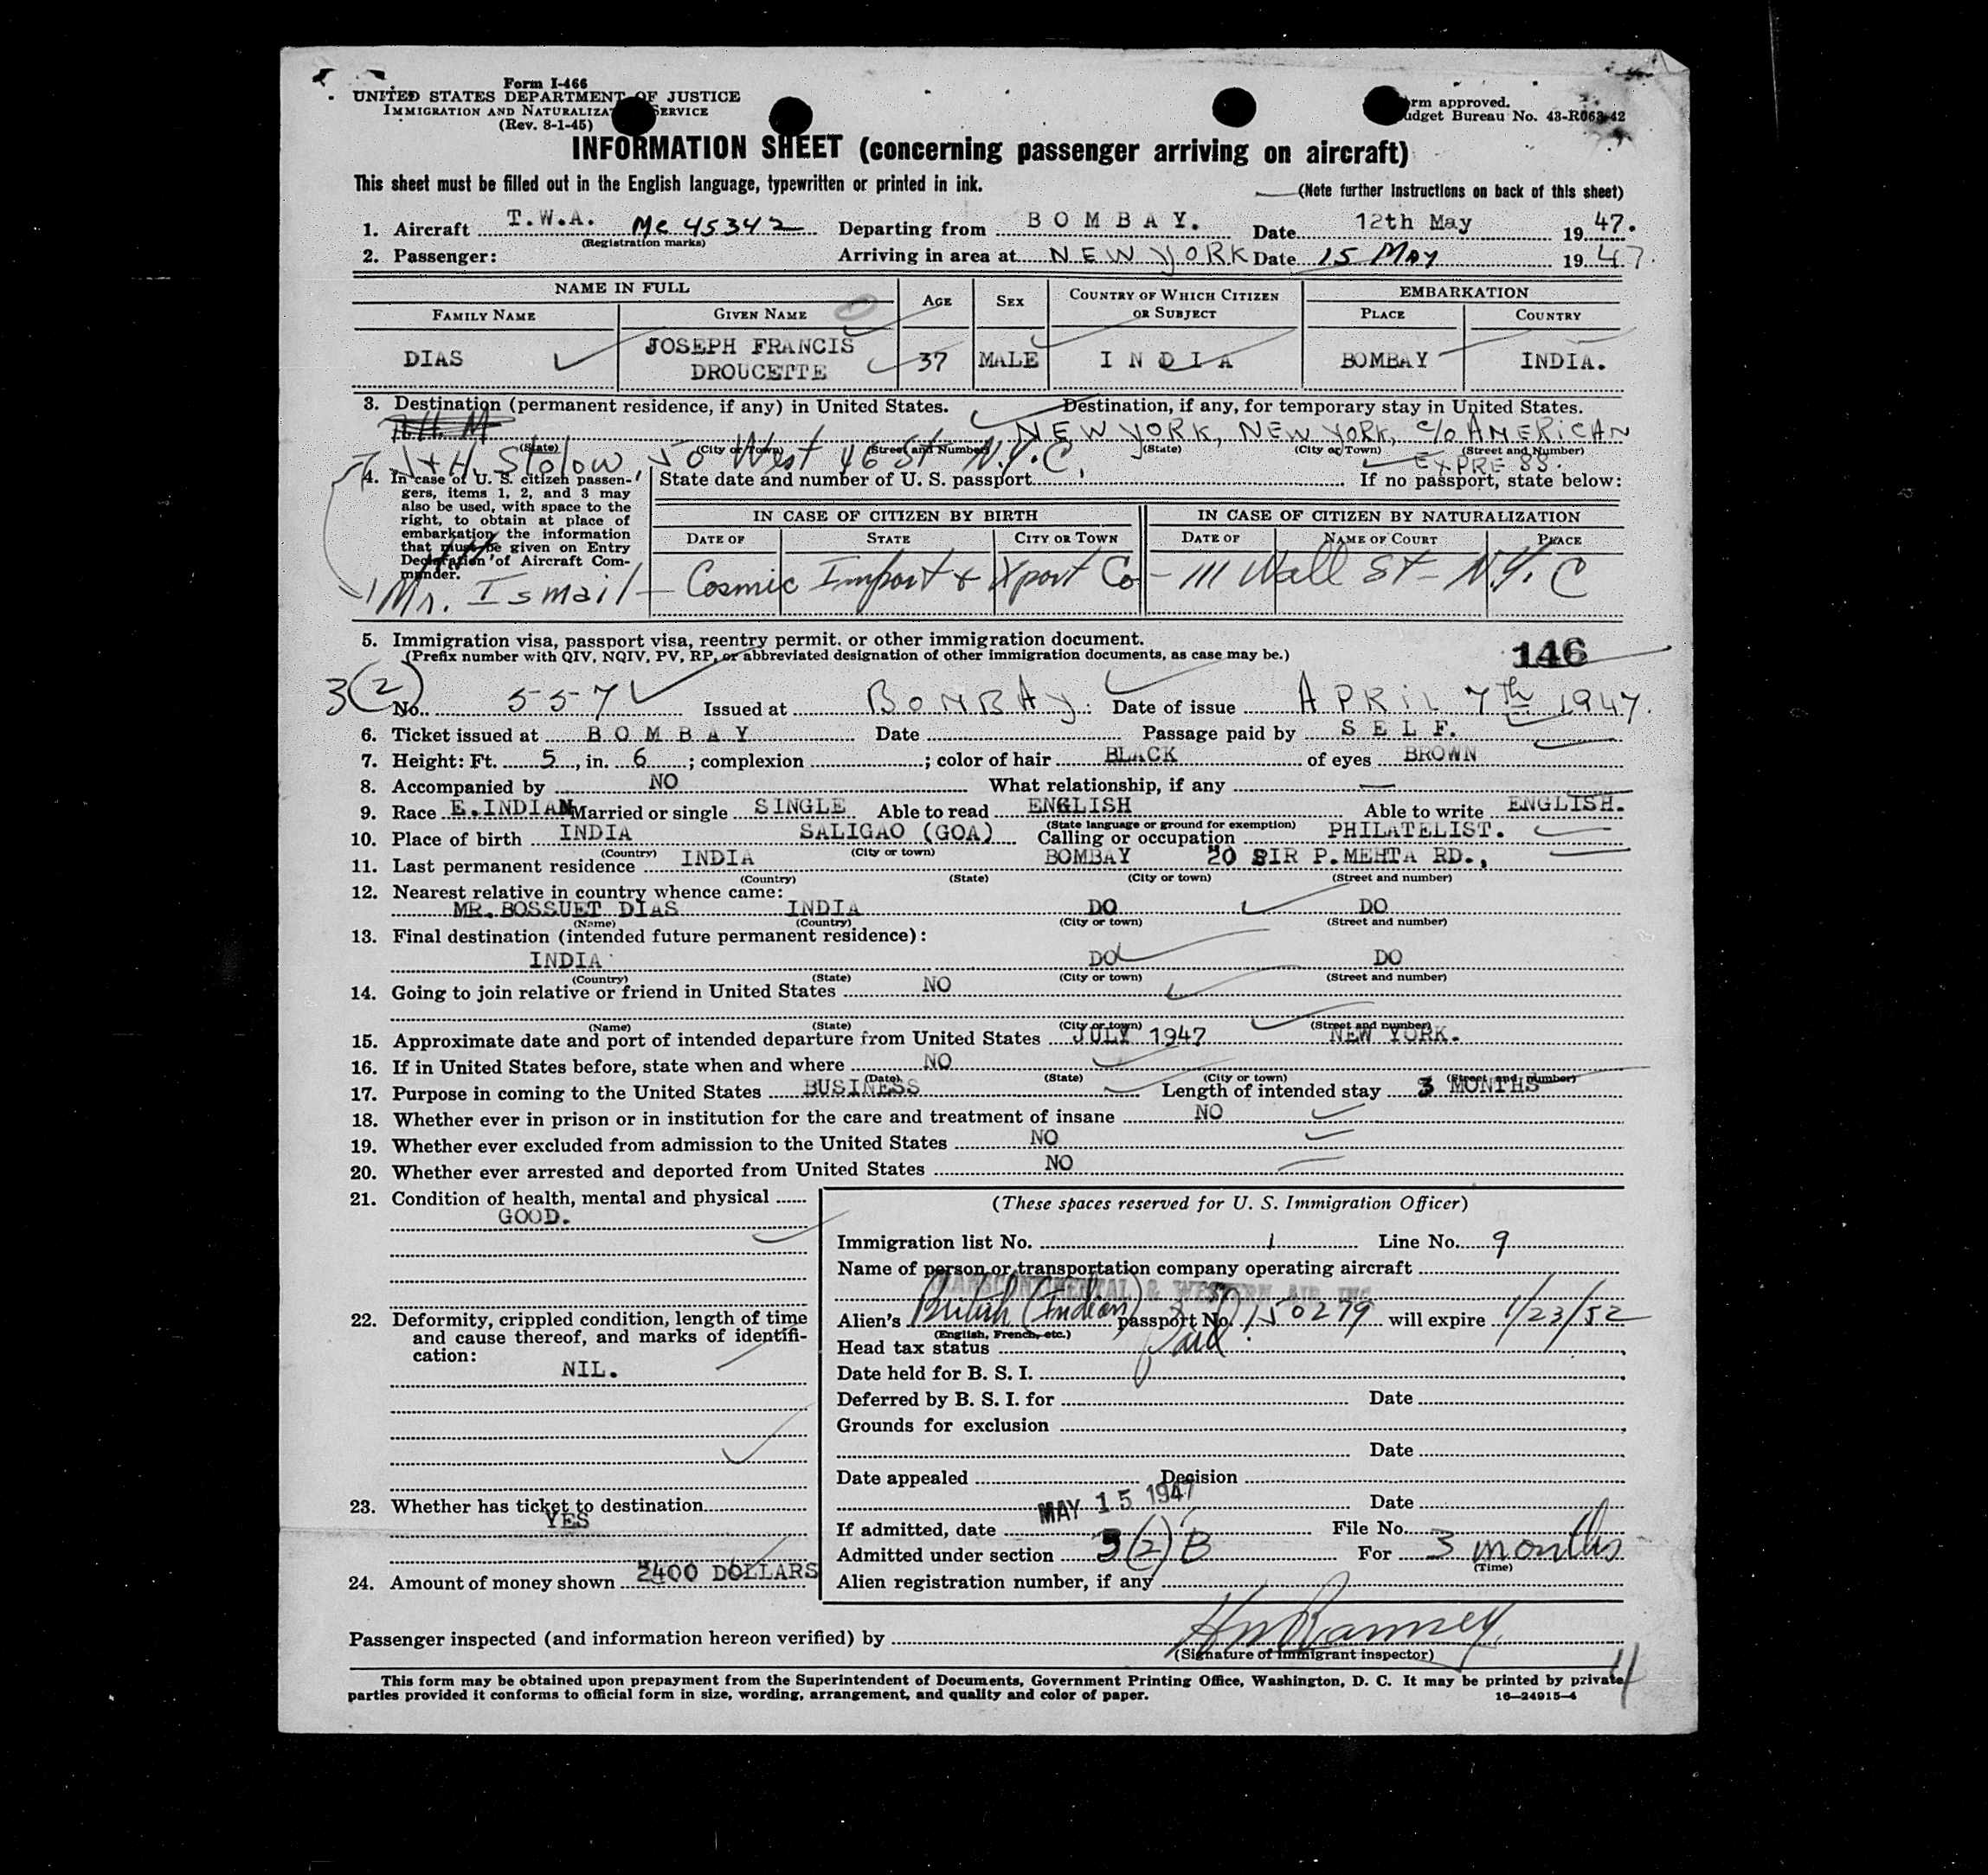 Form I-466
UNITED STATES DEPARTMENT OF JUSTICE
IMMIGRATION AND NATURALIZA SERVICE
(Rev. 8-1-45)
rm approved.
udget Bureau No. 43-R063-42
INFORMATION SHEET (concerning passenger arriving on aircraft)
This sheet must be filled out in the English language, typewritten or printed in ink.
(Note further instructions on back of this sheet)
1. Aircraft T.W.A. MC 45342 Departing from BOMBAY. Date 12th May 1947.
(Registration marks)
2. Passenger: Arriving in area at NEW YORK Date 15 MAY 1947.
NAME IN FULL
AGE SEX COUNTRY OF WHICH CITIZEN OR SUBJECT EMBARKATION
FAMILY NAME GIVEN NAME PLACE COUNTRY
DIAS JOSEPH FRANCIS DROUCETTE 37 MALE INDIA BOMBAY INDIA.
3. Destination (permanent residence, if any) in United States. Destination, if any, for temporary stay in United States.
NEW YORK, NEW YORK, C/O AMERICAN
(State) (City or Town) (Street and Number) (State) (City or Town) (Street and Number)
J + H. Stolow, 50 West 46 St N.Y.C. EXPRESS.
4. In case of U. S. citizen passen- State date and number of U. S. passport If no passport, state below:
gers, items 1, 2, and 3 may
also be used, with space to the
right, to obtain at place of
embarkation the information
that must be given on Entry
Declaration of Aircraft Com-
mander.
IN CASE OF CITIZEN BY BIRTH IN CASE OF CITIZEN BY NATURALIZATION
DATE OF STATE CITY OR TOWN DATE OF NAME OF COURT PLACE
Mr. Ismail - Cosmic Import & Xport Co - 111 Wall St - N.Y.C
5. Immigration visa, passport visa, reentry permit, or other immigration document.
(Prefix number with QIV, NQIV, PV, RP, or abbreviated designation of other immigration documents, as case may be.)
146
3(2) No. 557 Issued at BONBAY. Date of issue APRIL 7th 1947.
6. Ticket issued at BOMBAY Date Passage paid by SELF.
7. Height: Ft. 5, in. 6; complexion ; color of hair BLACK of eyes BROWN
8. Accompanied by NO What relationship, if any —
9. Race E.INDIAN Married or single SINGLE Able to read ENGLISH Able to write ENGLISH.
(State language or ground for exemption)
10. Place of birth INDIA SALIGAO (GOA) Calling or occupation PHILATELIST.
(Country) (City or town)
11. Last permanent residence INDIA BOMBAY 20 SIR P.MEHTA RD.,
(Country) (State) (City or town) (Street and number)
12. Nearest relative in country whence came:
MR.BOSSUET DIAS INDIA DO DO
(Name) (Country) (City or town) (Street and number)
13. Final destination (intended future permanent residence):
INDIA DO DO
(Country) (State) (City or town) (Street and number)
14. Going to join relative or friend in United States NO
(Name) (State) (City or town) (Street and number)
15. Approximate date and port of intended departure from United States JULY 1947 NEW YORK.
16. If in United States before, state when and where NO
(Date) (State) (City or town) (Street and number)
17. Purpose in coming to the United States BUSINESS Length of intended stay 3 MONTHS
18. Whether ever in prison or in institution for the care and treatment of insane NO
19. Whether ever excluded from admission to the United States NO
20. Whether ever arrested and deported from United States NO
21. Condition of health, mental and physical
GOOD.
22. Deformity, crippled condition, length of time
and cause thereof, and marks of identifi-
cation:
NIL.
23. Whether has ticket to destination
YES
24. Amount of money shown 2400 DOLLARS
(These spaces reserved for U. S. Immigration Officer)
Immigration list No. 1 Line No. 9
Name of person or transportation company operating aircraft
TRANSCONTINENTAL & WESTERN AIR INC
Alien's British (Indian) passport No. 150279 will expire 1/23/52
(English, French, etc.)
Head tax status Paid
Date held for B. S. I.
Deferred by B. S. I. for Date
Grounds for exclusion
Date
Date appealed Decision
Date
If admitted, date MAY 15 1947 File No.
Admitted under section 3(2)B For 3 months
(Time)
Alien registration number, if any
Passenger inspected (and information hereon verified) by
(Signature of immigrant inspector)
This form may be obtained upon prepayment from the Superintendent of Documents, Government Printing Office, Washington, D. C. It may be printed by private
parties provided it conforms to official form in size, wording, arrangement, and quality and color of paper. 16—24915-4